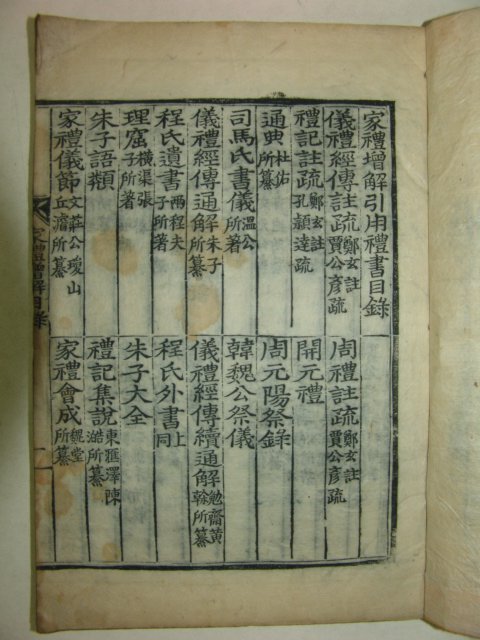 家禮增解引用禮書目錄
儀禮經傳註疏 鄭玄註賈公彥疏 周禮註疏 鄭玄註賈公彥疏
禮記註疏 鄭玄註孔穎達疏 開元禮
通典 杜佑所纂 周元陽祭錄
司馬氏書儀 溫公所著 韓魏公祭儀
儀禮經傳通解 朱子所纂 儀禮經傳續通解 勉齋黃榦所纂
程氏遺書 兩程夫子所著 程氏外書 上同
理窟 橫渠張子所著 朱子大全
朱子語類 禮記集說 東滙澤陳澔所纂
家禮儀節 文莊公瓊山丘濬所纂 家禮會成 魏堂所纂
家禮增解目錄 一